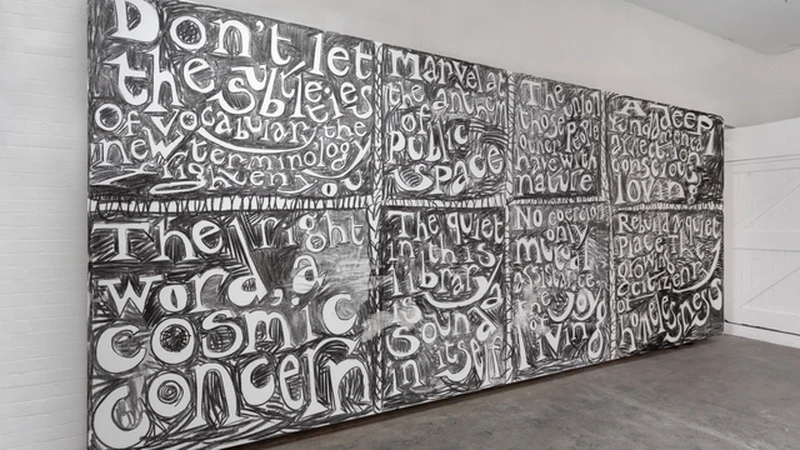 Don't let
the subtleties
of vocabulary, the
new terminology
frighten you
Marvel at
the anthem
of
public
space
The union
those
other people
have with
nature
A deep
fundamental
affection
conscious
loving
The right
word, a
cosmic
concern
The quiet
in this
library
is
sound
in itself
No coercion
only
mutual
assistance
the joy
of
living
Rebuild a quiet
place
growing
citizenry
of
homelessness